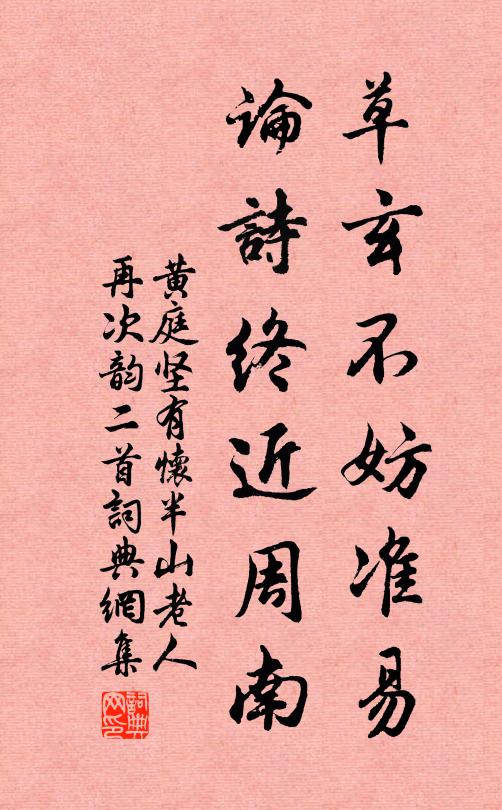 草玄不妨准易
論詩終近周南
黄庭坚有懷半山老人
再次韵二首詞典網集
詞典
网印